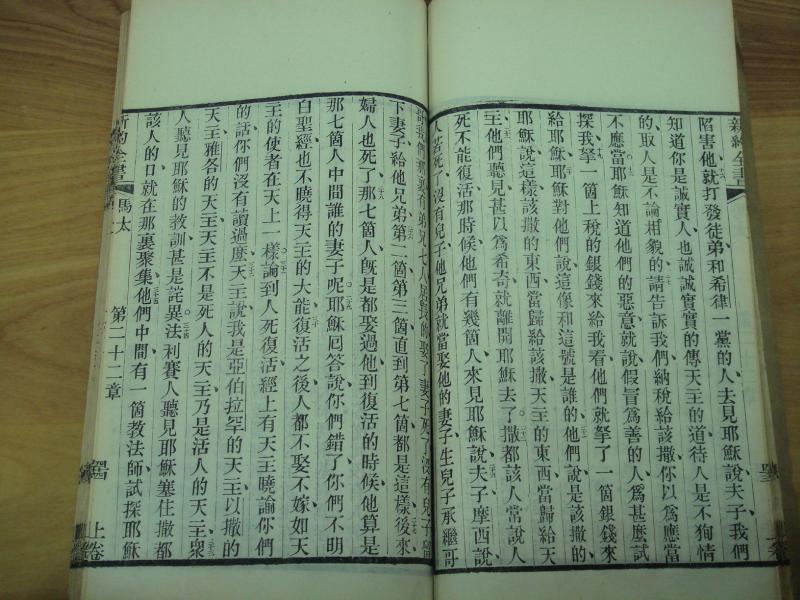 新約全書
陷害他就打發徒弟和希律一黨的人去見耶穌說夫子我們
知道你是誠實人也誠誠實實的傳天主的道待人是不狥情
的取人是不論相貌的請告訴我們納稅給該撒你以爲應當
不應當耶穌知道他們的惡意就說假冒爲善的人爲甚麼試
探我拏一箇上稅的銀錢來給我看他們就拏了一箇銀錢來
給耶穌耶穌對他們說這像和這號是誰的他們說是該撒的
耶穌說這樣該撒的東西當歸給該撒天主的東西當歸給天
主他們聽見甚以爲希奇就離開耶穌去了撒都該人常說人
死不能復活那時候他們有幾箇人來見耶穌說夫子摩西說
人若死了沒有兒子他兄弟就當娶他的妻子生兒子承繼哥
我們那裏有弟兄七人居長的娶了妻子死了沒有兒子留
下妻子給他兄弟第二箇第三箇直到第七箇都是這樣後來
婦人也死了那七箇人旣是都娶過他到復活的時候他算是
那七箇人中間誰的妻子呢耶穌回答說你們錯了你們不明
白聖經也不曉得天主的大能復活之後人都不娶不嫁如天
主的使者在天上一樣論到人死復活經上有天主曉諭你們
的話你們沒有讀過麼天主說我是亞伯拉罕的天主以撒的
天主雅各的天主天主不是死人的天主乃是活人的天主衆
人聽見耶穌的教訓甚是詫異法利賽人聽見耶穌塞住撒都
該人的口就在那裏聚集他們中間有一箇教法師試探耶穌
新約全書
馬太
第二十二章
上卷